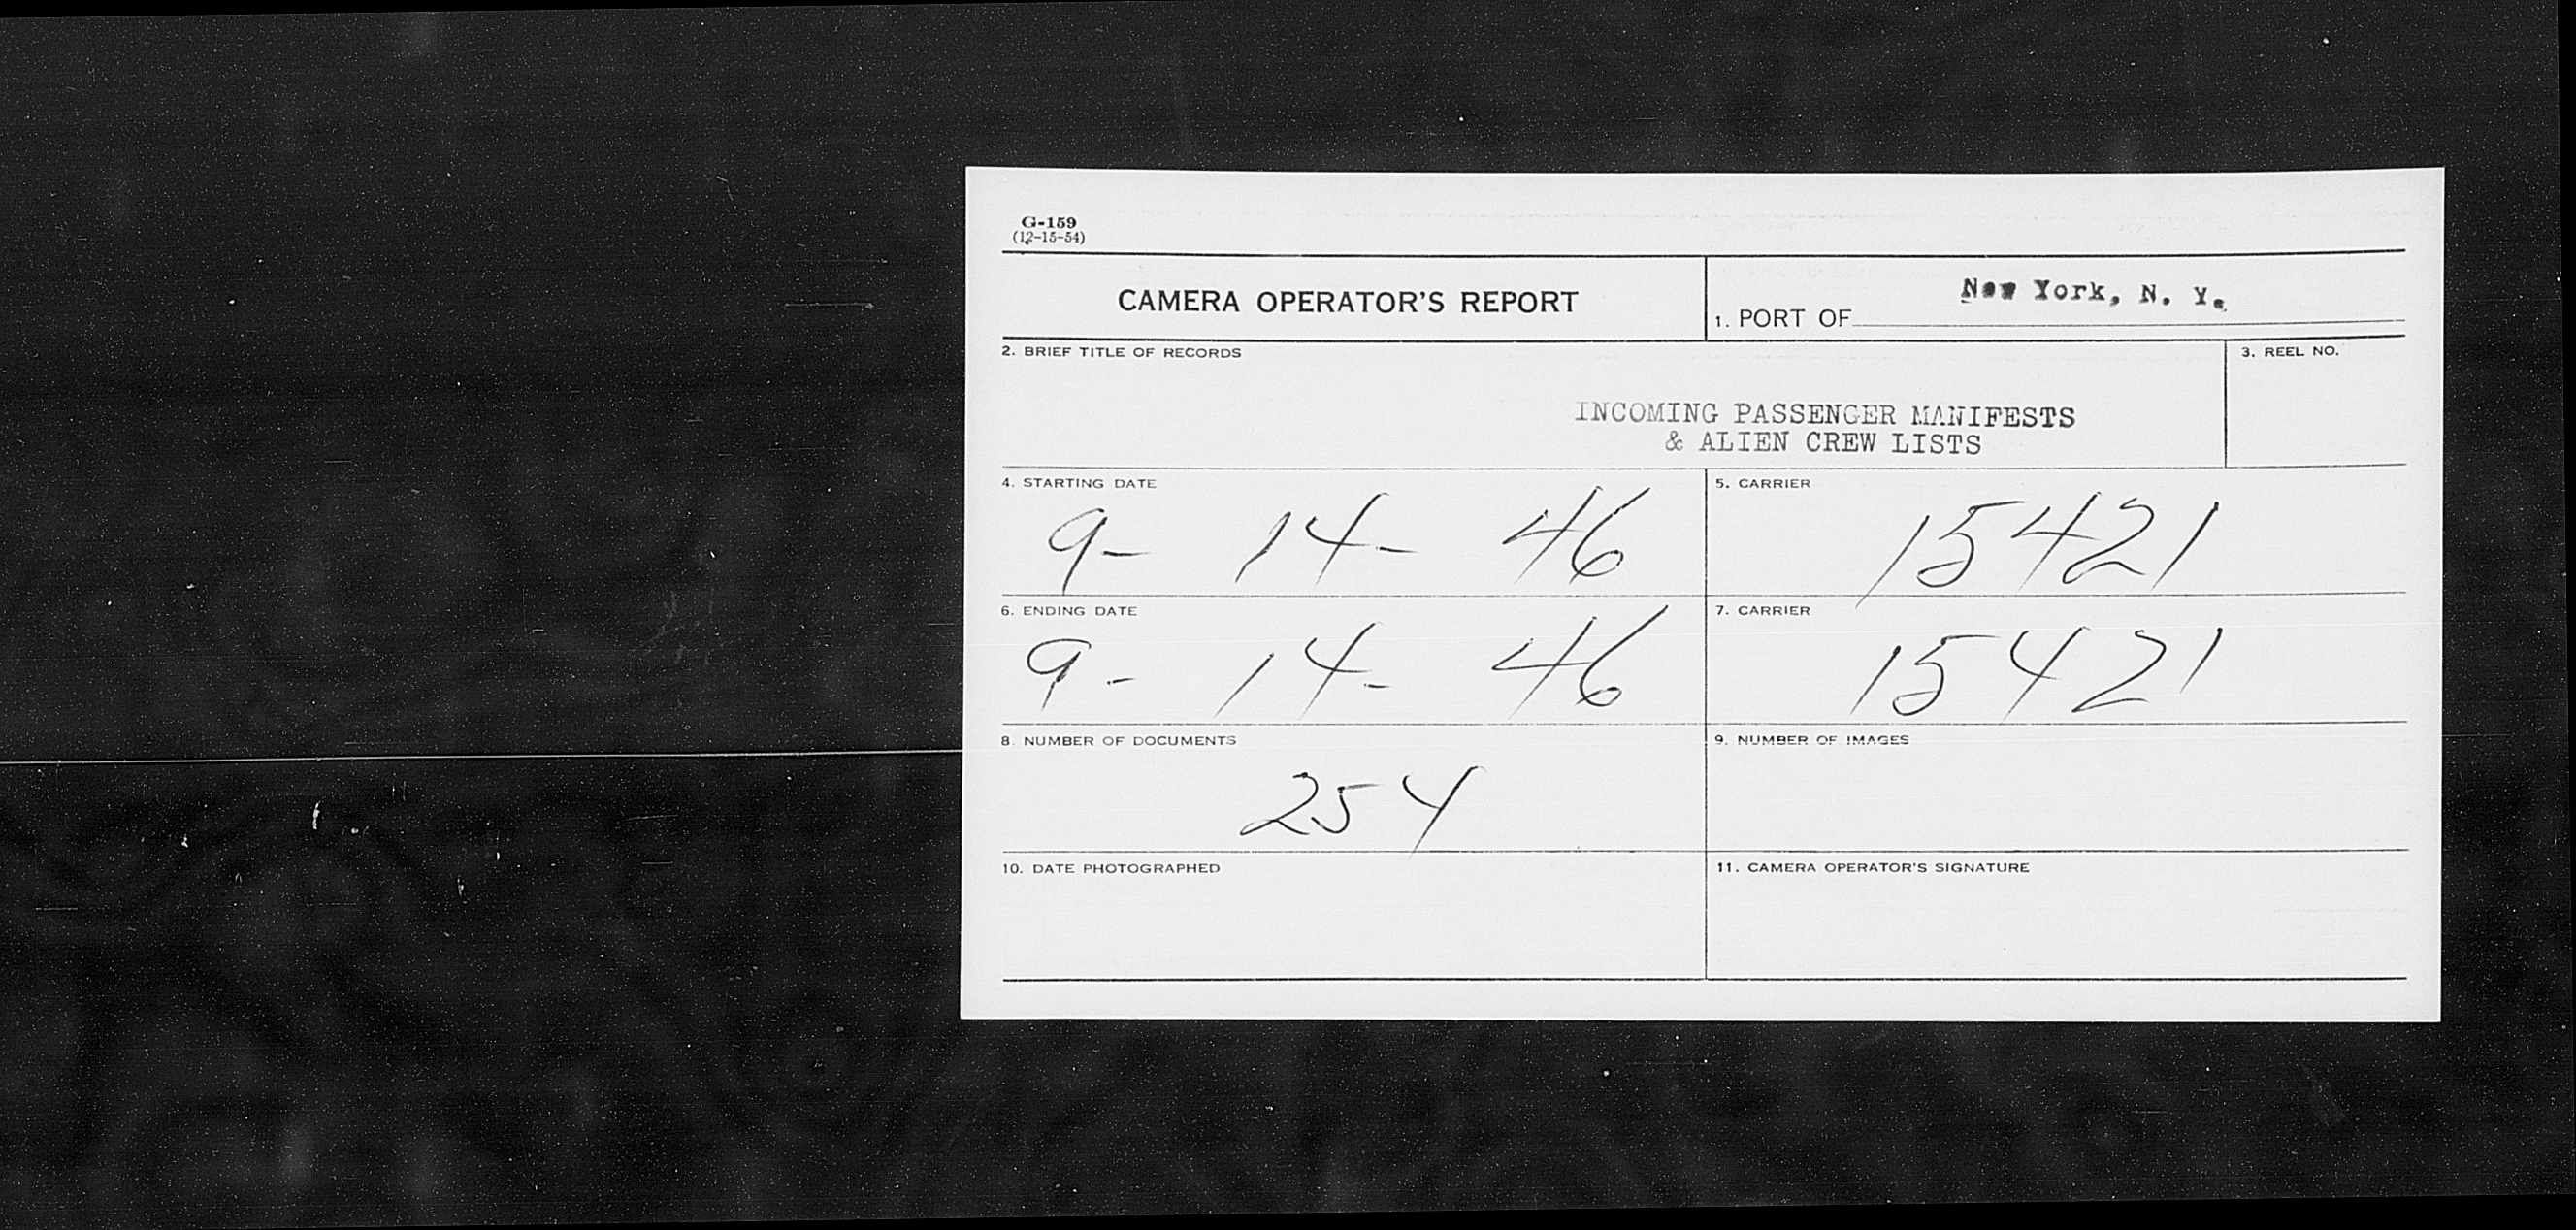 G-159
(12-15-54)
CAMERA OPERATOR'S REPORT
1. PORT OF New York, N. Y.
2. BRIEF TITLE OF RECORDS
3. REEL NO.
INCOMING PASSENGER MANIFESTS
& ALIEN CREW LISTS
4. STARTING DATE
9- 14- 46
5. CARRIER
15421
6. ENDING DATE
9- 14- 46
7. CARRIER
15421
8. NUMBER OF DOCUMENTS
254
9. NUMBER OF IMAGES
10. DATE PHOTOGRAPHED
11. CAMERA OPERATOR'S SIGNATURE